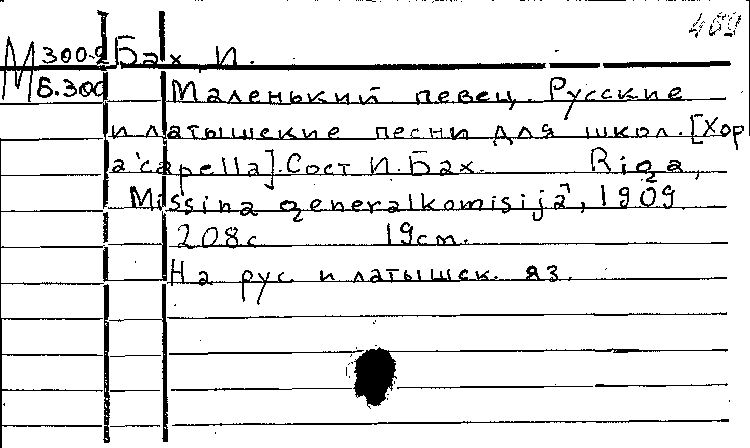 469
М 300-2 Бах, И.
Б.300 Маленький певец. Русские
и латышские песни для школ. [Хор
a'capella]. Сост И. Бах. Riga,
Missiņa generalkomisijā, 1909.
208с 19cm.
На рус и латышск. яз.